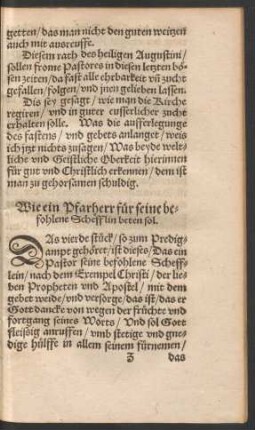 getten / das man nicht den guten weitzen
auch mit ausreusse.
Diesem rath des heiligen Augustini /
sollen frome Pastores in diesen letzten bö-
sen zeiten / da fast alle ehrbarkeit vñ zucht
gefallen / folgen / vnd jnen gelieben lassen.
Dis sey gesagt / wie man die Kirche
regiren / vnd in guter eusserlicher zucht
erhalten solle. Was die aufferlegunge
des fastens / vnd gebets anlanget / weis
ich jtzt nichts zusagen / Was beyde welt-
liche vnd Geistliche Oberkeit hierinnen
für gut vnd Christlich erkennen / dem ist
man zu gehorsamen schuldig.
Wie ein Pfarherr für seine be-
fohlene Schefflin beten sol.
DAs vierde stück / so zum Predig-
ampt gehöret / ist dieses / Das ein
Pastor seine befohlene Scheff-
lein / nach dem Exempel Christi / der lie-
ben Propheten vnd Apostel / mit dem
gebet weide / vnd versorge / das ist / das er
Gott dancke von wegen der früchte vnd
fortgang seines Worts / Vnd sol Gott
fleissig anruffen / vmb stetige vnd gne-
dige hülffe in allem seinem fürnemen /
3 das